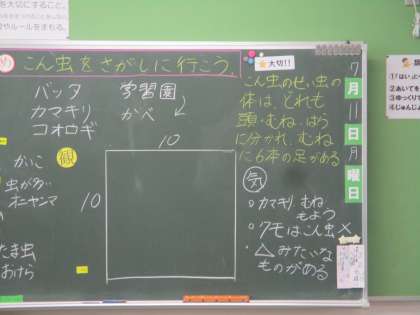 を大切にすること。
やルールをまもる。
こん虫をさがしに行こう。
バッタ
カマキリ
コオロギ
学習園
かべ
10
10
かいこ
観
虫がが
オニヤンマ
たま虫
おけら
大切!!
こん虫のせい虫の
体は、どれも
頭・むね・はら
に分かれ、むね
に6本の足がある
気
カマキリ むね
もよう
クモはこん虫×
△みたいな
ものがある
7
月
11
日
月
曜
日
①「はい」と
②あいてを
③ゆっくり
④じゅんじょ